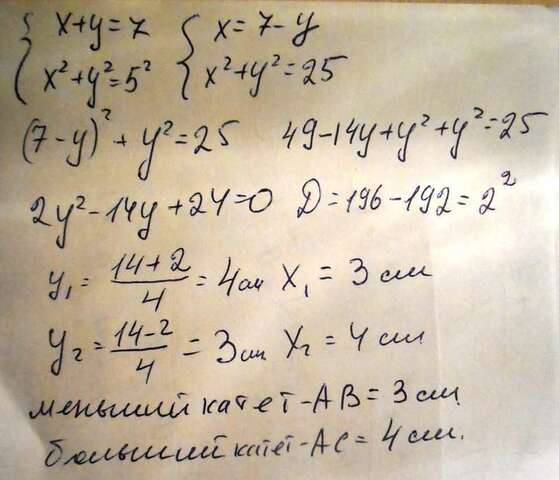 { x+y=7 { x=7-y
x²+y²=5² x²+y²=25
(7-y)²+y²=25 49-14y+y²+y²=25
2y²-14y+24=0 D=196-192=2²
y₁=\frac{14+2}{4}=4см x₁=3см
y₂=\frac{14-2}{4}=3см x₂=4см
меньший катет-AB=3см
больший катет-AC=4см.